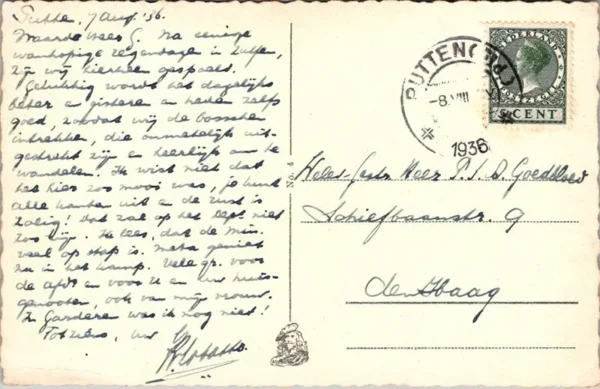 Putten, 7 Aug. '36.
Waarde Heer G. Na eenige
wanhopige regendagen in Zutfen,
zijn wij hierheen gespoeld.
Gelukkig wordt het dagelijks
beter en gisteren en heden zelfs
goed, zoodat wij de bosschen
intrekken, die onmetelijk uit-
gestrekt zijn en heerlijk om te
wandelen. Ik wist niet dat
het hier zoo mooi was, je kunt
alle kanten uit en de rust is
zalig! Dat zal op het
zoo zijn. Ik lees, dat de Min.
veel op stap is. geniet
nu in het kamp. Vele gr. voor
de afd. en voor U en uw huis-
genooten, ook van mijn vrouw.
In Garderen was ik nog niet!
Tot ziens, uw
PUTTEN (GLD)
-8.VIII
1936
NEDERLAND
5 CENT
No. 4
WelEd. Gestr. Heer P.J.D. Goedbloed
Schiefbaanstr. 9
den Haag